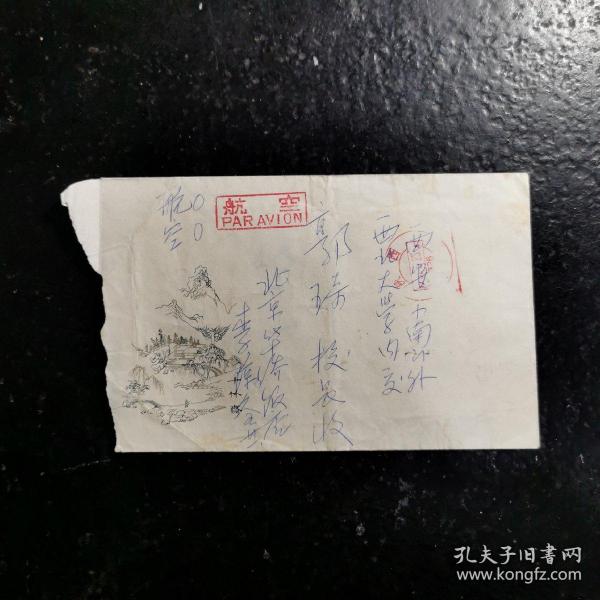 西安 小南门外
西北大学内交
郭琦 校长收
北京 华侨饭店
航空
PAR AVION
航空
孔夫子旧書网
www.kongfz.com